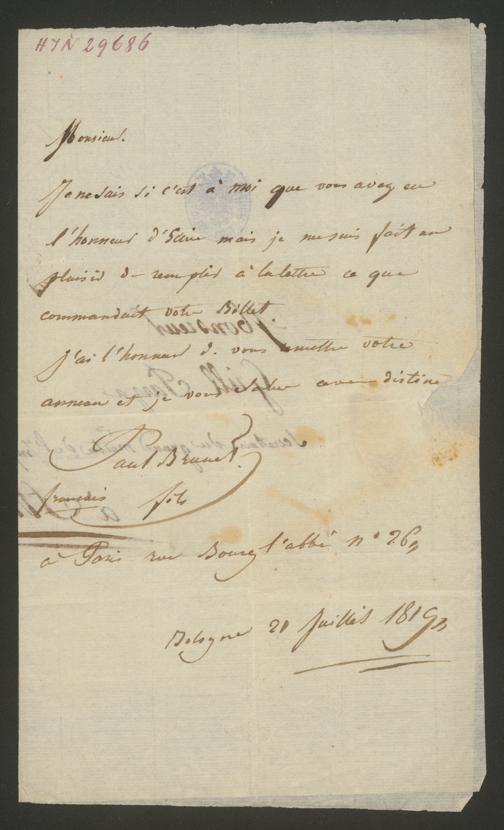 HIN 29686
Monsieur.
Je ne sais si c'est à moi que vous avez eu
l'honneur d'Ecrire mais je me suis fait un
plaisir de remplir à la lettre ce que
commandait votre Billet.
J'ai l'honneur de vous remettre votre
anneau et je vous salue avec
Paul Brunet
français fils
à Paris rue Bourg l'abbé n° 26
Bologne 21 Juillet 1819